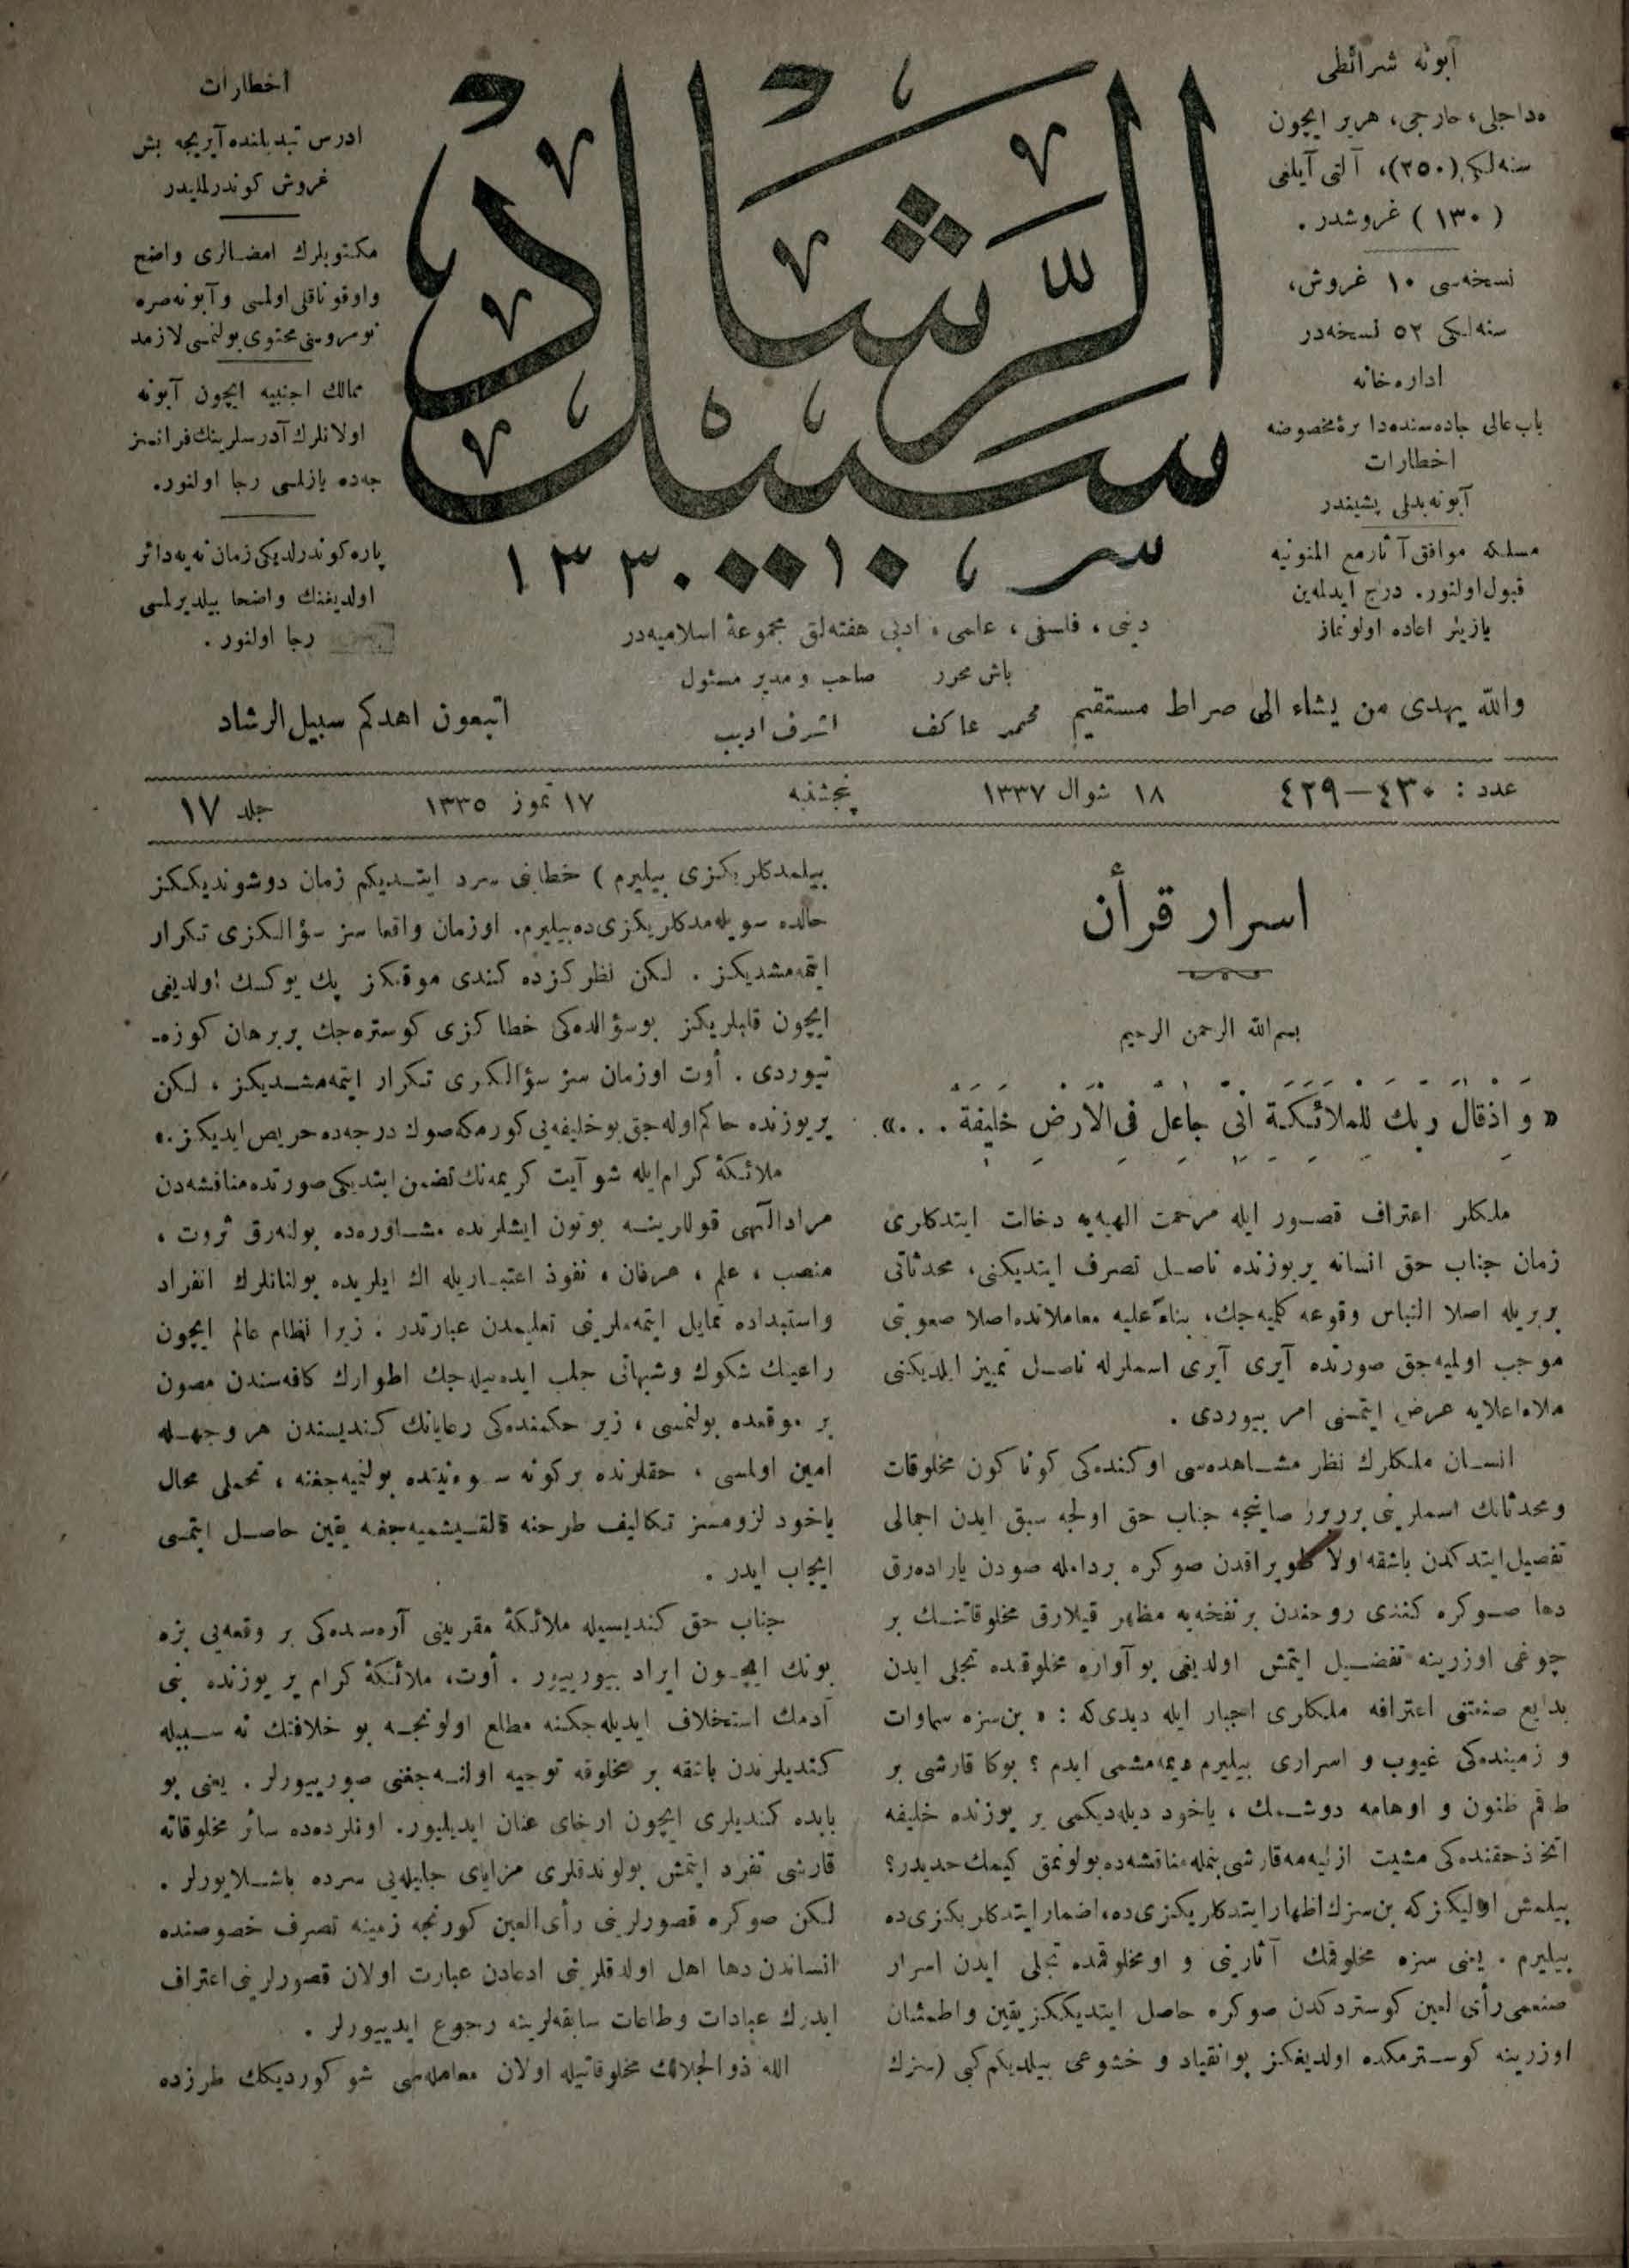 آبونه شرائطى
داخلى، خارجى، هرير ايچون
سنه لكى (٢٥٠)، آلتى آيلغى
(١٣٠) غروشدر .
نسخه سى ١٠ غروش،
سنه لكى ٥٢ نسخه در
اداره خانه
باب عالى جاده سنده دائرهٔ مخصوصه
اخطارات
آبونه بدلى پشيندر
مسلكه موافق آثار مع الممنونيه
قبول اولنور. درج ايدلمه ين
يازيلر اعاده اولونماز
سبيل الرشاد
سر ١٠ ١٣٣٠
دينى ، فلسفى ، علمى ، ادبى هفته لق مجموعهٔ اسلاميه در
باش محرر
محمد عاكف
صاحب و مدير مسئول
اشرف اديب
اخطارات
ادرس تبديلنده آيريجه بش
غروش كوندرلمليدر
مكتوبلرك امضالرى واضح
واوقوناقلى اولمسى وآبونه صره
نومروسنى محتوى بولنمسى لازمدر
ممالك اجنبيه ايچون آبونه
اولانلرك آدرسلرينك فرانسز
جه ده يازلمسى رجا اولنور.
پاره كوندرلديكى زمان نه يه دائر
اولديغنك واضحا بيلديرلمسى
رجا اولنور .
والله يهدى من يشاء الى صراط مستقيم
اتبعون اهدكم سبيل الرشاد
عدد : ٤٣٠—٤٢٩
١٨ شوال ١٣٣٧
پنجشنبه
١٧ تموز ١٣٣٥
جلد ١٧
اسرار قرأن
بسم الله الرحمن الرحيم
« وَ اِذْقَالَ رَبُّكَ لِلْمَلَائِكَةِ اِنِّى جَاعِلٌ فِى الْاَرْضِ خَلِيفَةً . . . »
ملكلر اعتراف قصور ايله مرحمت الهيه يه دخالت ايتدكلرى
زمان جناب حق انسانه يريوزنده ناصل تصرف ايتديكنى، محدثاتى
بربريله اصلا التباس وقوعه كلميه جك، بناءً عليه معاملاتده اصلا صعوبتى
موجب اولميه جق صورتده آيرى آيرى اسملرله ناصل تمييز ايلديكنى
ملاء اعلايه عرض ايتمسنى امر بيوردى .
انسان ملكلرك نظر مشاهده سى اوكنده كى كونا كون مخلوقات
ومحدثاتك اسملرينى برر برر صاينجه جناب حق اولجه سبق ايدن اجمالى
تفصيل ايتدكدن باشقه اولا طوپراقدن صوكره بردامله صودن ياراده رق
دها صوكره كندى روحندن بر نفخه يه مظهر قيلارق مخلوقاتنك بر
چوغى اوزرينه تفضيل ايتمش اولديغى بو آواره مخلوقده تجلى ايدن
بدايع صنعتنى اعترافه ملكلرى اجبار ايله ديدى كه : « بن سزه سماوات
و زمينده كى غيوب و اسرارى بيليرم ديمه مشمى ايدم ؟ بوكا قارشى بر
طاقم ظنون و اوهامه دوشمك ، ياخود ديله ديكمى بر يوزنده خليفه
اتخاذ حقنده كى مشيت ازليه مه قارشى بنمله مناقشه ده بولونمق كيمك حديدر؟
بيلمش اوليكز كه بن سزك اظهار ايتدكلريكزى ده، اضمار ايتدكلريكزى ده
بيليرم . يعنى سزه مخلوقك آثارينى و او مخلوقمده تجلى ايدن اسرار
صنعمى رأى العين كوستردكدن صوكره حاصل ايتديككز يقين واطمئنان
اوزرينه كوسترمكده اولديغكز بو انقياد و خشوعى بيلديكم كبى (سزك
بيلمدكلريكزى بيليرم ) خطابنى سرد ايتديكم زمان دوشونديككز
حالده سويله مدكلريكزى ده بيليرم. اوزمان واقعا سز سؤالكزى تكرار
ايتمه مشديكز . لكن نظركزده كندى موقعكز پك يوكسك اولديغى
ايچون قلبلريكز بوسؤالده كى خطاكزى كوستره جك بر برهان كوزه-
تييوردى . أوت اوزمان سز سؤالكزى تكرار ايتمه مشديكز ، لكن
يريوزنده حاكم اوله جق بو خليفه يى كورمكه صوك درجه ده حريص ايديكز.»
ملائكهٔ كرام ايله شو آيت كريمه نك تضمن ايتديكى صورتده مناقشه دن
مراد الٓهى قوللرينه بوتون ايشلرنده مشاوره ده بولنه رق ثروت ،
منصب ، علم ، عرفان ، نفوذ اعتباريله اك ايلريده بولنانلرك انفراد
واستبداده تمايل ايتمه ملرينى تعليمدن عبارتدر . زيرا نظام عالم ايچون
راعينك شكوك وشبهاتى جلب ايده بيله جك اطوارك كافه سندن مصون
بر موقعده بولنمسى ، زير حكمنده كى رعايانك كنديسندن هر وجهله
امين اولمسى ، حقلرنده بركونه سوء نيتده بولنميه جغنه ، تحملى محال
ياخود لزومسز تكاليف طرحنه قالقيشميه جغنه يقين حاصل ايتمسى
ايجاب ايدر .
جناب حق كنديسيله ملائكهٔ مقربينى آره سنده كى بر وقعه يى بزه
بونك ايچون ايراد بيورييور . أوت، ملائكهٔ كرام ير يوزنده بنى
آدمك استخلاف ايديله جكنه مطلع اولونجه بو خلافتك نه سببله
كنديلرندن باشقه بر مخلوقه توجيه اولنه جغنى صورييورلر . يعنى بو
بابده كنديلرى ايچون ارخاى عنان ايديليور. اونلرده ده سائر مخلوقاته
قارشى تفرد ايتمش بولوندقلرى مزاياى جليله يى سرده باشلايورلر .
لكن صوكره قصورلرينى رأى العين كورنجه زمينه تصرف خصوصنده
انساندن دها اهل اولدقلرينى ادعادن عبارت اولان قصورلرينى اعتراف
ايدرك عبادات وطاعات سابقه لرينه رجوع ايدييورلر .
الله ذو الجلالك مخلوقاتيله اولان معامله سى شو كورديكك طرزده